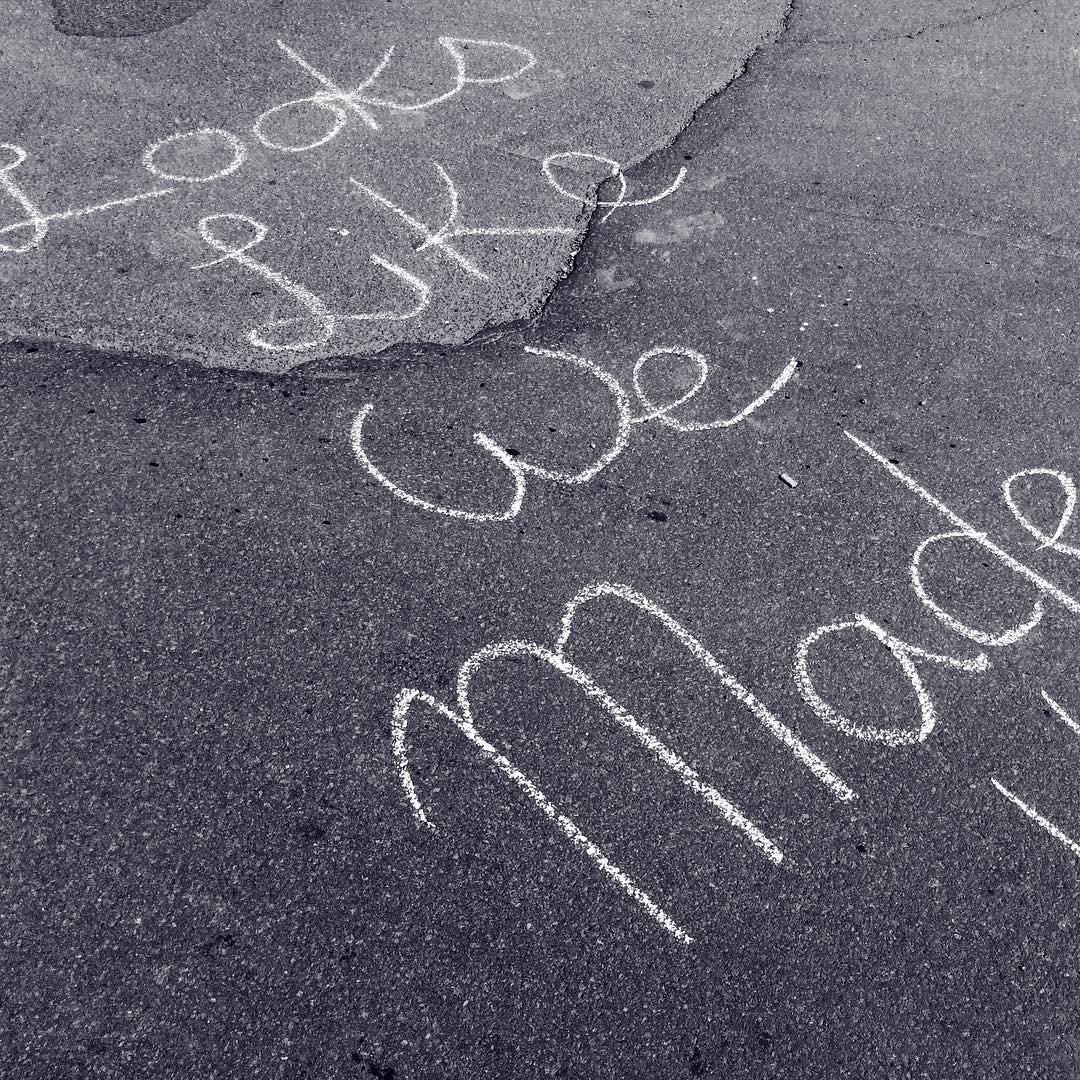 Looks
Like
We
Made